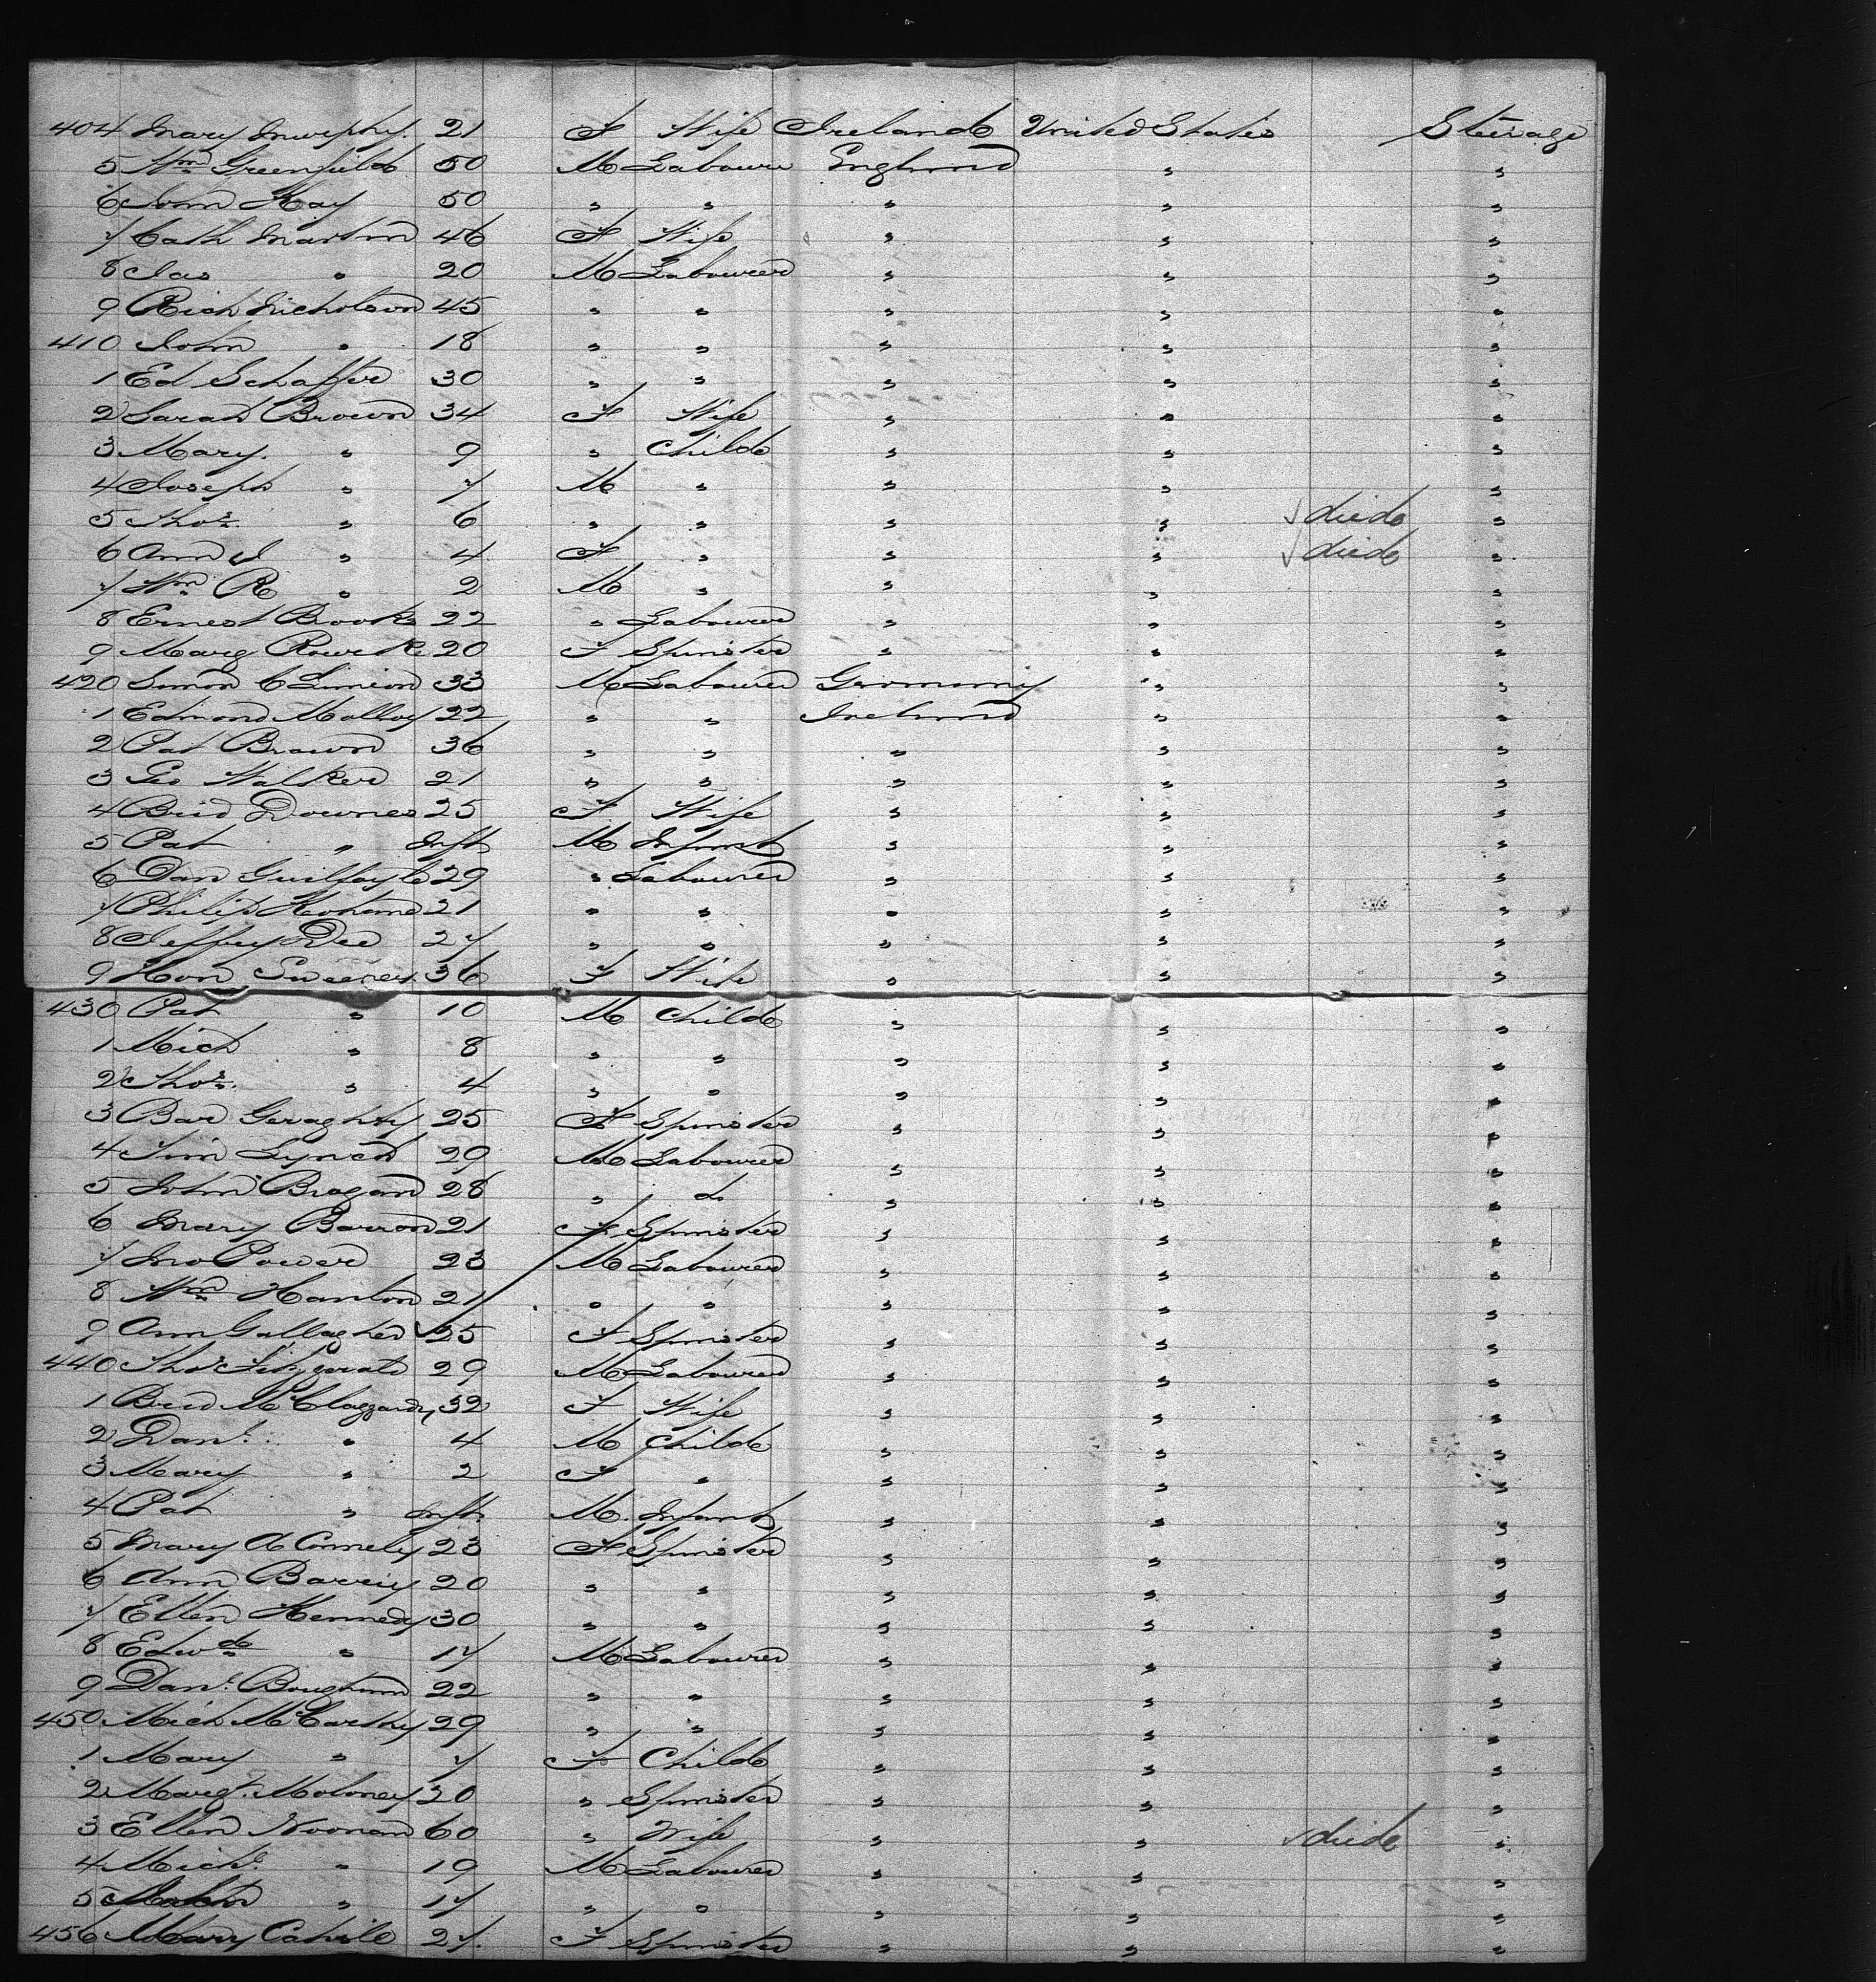 404 Mary Murphy. 21 F Wife Ireland United States Steerage
5 Wm Greenfield 50 M Labourer England " "
6 John Kay 50 " " " " "
7 Cath Martin 46 F Wife " " "
8 Jas " 20 M Labourer " " "
9 Rich Nicholson 45 " " " " "
410 John " 18 " " " " "
1 Ed Schaffer 30 " " " " "
2 Sarah Brown 34 F Wife " " "
3 Mary. " 9 " Child " " "
4 Joseph " 7 M " " " "
5 Thos. " 6 " " " " died "
6 Ann J " 4 F " " " died "
7 Wm R " 2 M " " " "
8 Ernest Brooks 22 " Labourer " " "
9 Marg 20 F Spinster " " "
420 Simon C 33 M Labourer Germany " "
1 Edmond Molloy 22 " " Ireland " "
2 Pat Brown 36 " " " " "
3 Geo Walker 21 " " " " "
4 Brid Downes 25 F Wife " " "
5 Pat " Inft M Infant " " "
6 Dan Guilfoyle 29 " Labourer " " "
7 Philip Keohane 21 " " " " "
8 Jeffry Dee 27 " " " " "
9 Hon Sweeney 36 F Wife " " "
430 Pat " 10 M Child " " "
1 Mich " 8 " " " " "
2 Thos. " 4 " " " " "
3 Bar Geraghty 25 F Spinster " " "
4 Tim Lynch 29 M Labourer " " "
5 John Brogan 28 " do " " "
6 Mary Barron 21 F Spinster " " "
7 Jno Power 23 M Labourer " " "
8 Wm Hanlon 21 " " " " "
9 Ann Gallagher 25 F Spinster " " "
440 Thos Fitzgerald 29 M Labourer " " "
1 Brid 32 F Wife " " "
2 Danl. " 4 M Child " " "
3 Mary " 2 F " " " "
4 Pat " Inft. M. Infant " " "
5 Mary A Connely 23 F Spinster " " "
6 Ann Barry 20 " " " " "
7 Ellen Kennedy 30 " " " " "
8 Edwd " 17 M Labourer " " "
9 Danl. Boughan 22 " " " " "
450 Mich McCarthy 29 " " " " "
1 Mary " 7 F Child " " "
2 Margt. Moloney 20 " Spinster " " "
3 Ellen Noonan 60 " Wife " " died "
4 Michl. " 19 M Labourer " " "
5 " 17 " " " " "
456 Mary Cahill 27. F Spinster " " "